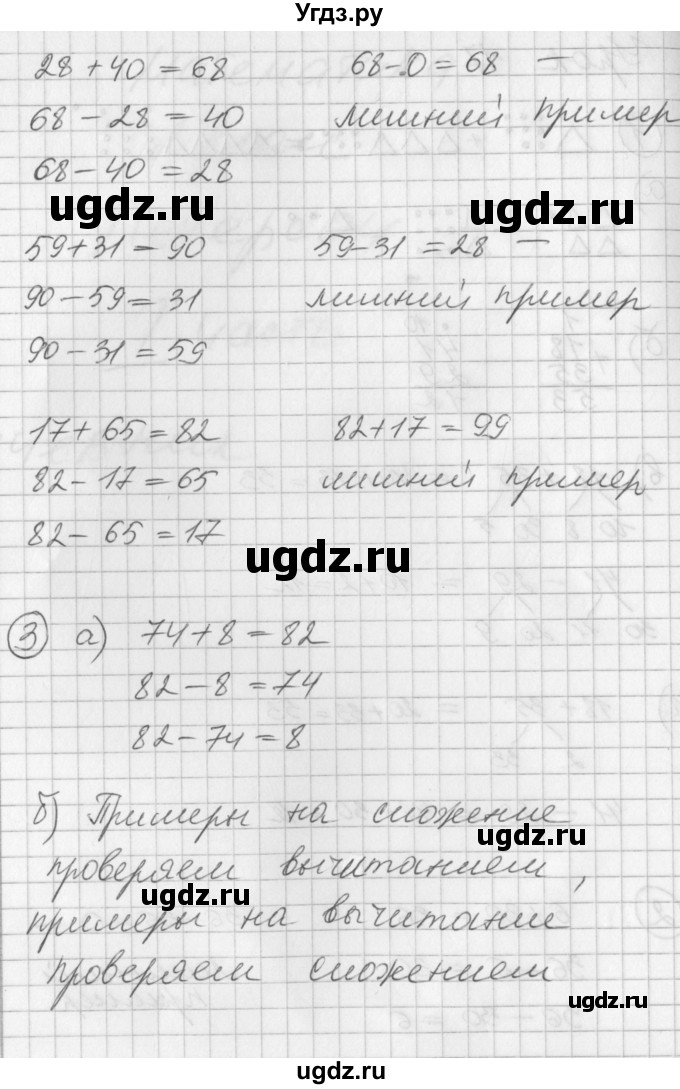 Угдз.ру
28 + 40 = 68    68 - 0 = 68 —
68 - 28 = 40    лишний пример
68 - 40 = 28
ugdz.ru    ugdz.ru
59 + 31 = 90    59 - 31 = 28 —
90 - 59 = 31    лишний пример
90 - 31 = 59
17 + 65 = 82    82 + 17 = 99
82 - 17 = 65    лишний пример
82 - 65 = 17
ugdz.ru
3 а) 74 + 8 = 82
82 - 8 = 74
82 - 74 = 8
б) Примеры на сложение
ugdz.ru
проверяем вычитанием,
ugdz.ru
примеры на вычитание
проверяем сложением
ugdz.ru
ugdz.ru